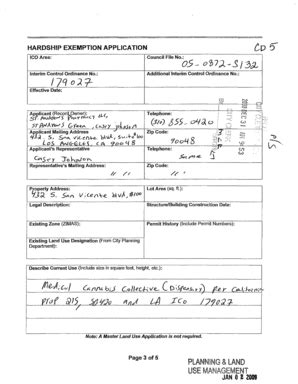 CD 5
HARDSHIP EXEMPTION APPLICATION
ICO Area:
Council File No.:
05-0872-S132
Interim Control Ordinance No.:
Additional Interim Control Ordinance No.:
179027
Effective Date:
Applicant (Record Owner):
Telephone:
St Andrew's Green, Casey Johnson
(310) 855-0420
Applicant Mailing Address
Zip Code:
432 S. San Vicente blvd, suite 100
LOS ANGELES, CA 90048
90048
Applicant's Representative:
Telephone:
Casey Johnson
Same
Representative's Mailing Address:
Zip Code:
" "
" "
Property Address:
Lot Area (sq. ft.):
432 S. San Vicente blvd, #100
Legal Description:
Structure/Building Construction Date:
Existing Zone (ZIMAS):
Permit History (Include Permit Numbers):
Existing Land Use Designation (From City Planning
Department):
Describe Current Use (Include size in square feet, height, etc.):
Medical Cannabis Collective (Dispensary) Per California
Prop 215, SB420 and LA ICO 179027
Note: A Master Land Use Application is not required.
Page 3 of 5
PLANNING & LAND
USE MANAGEMENT
JAN 0 8 2009